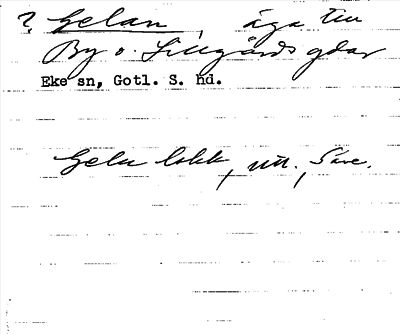 ? Gelan, äga till
By o. Lillgårds gdar
Eke sn, Gotl. S. hd.
Gelu lokk, utt., Säve.